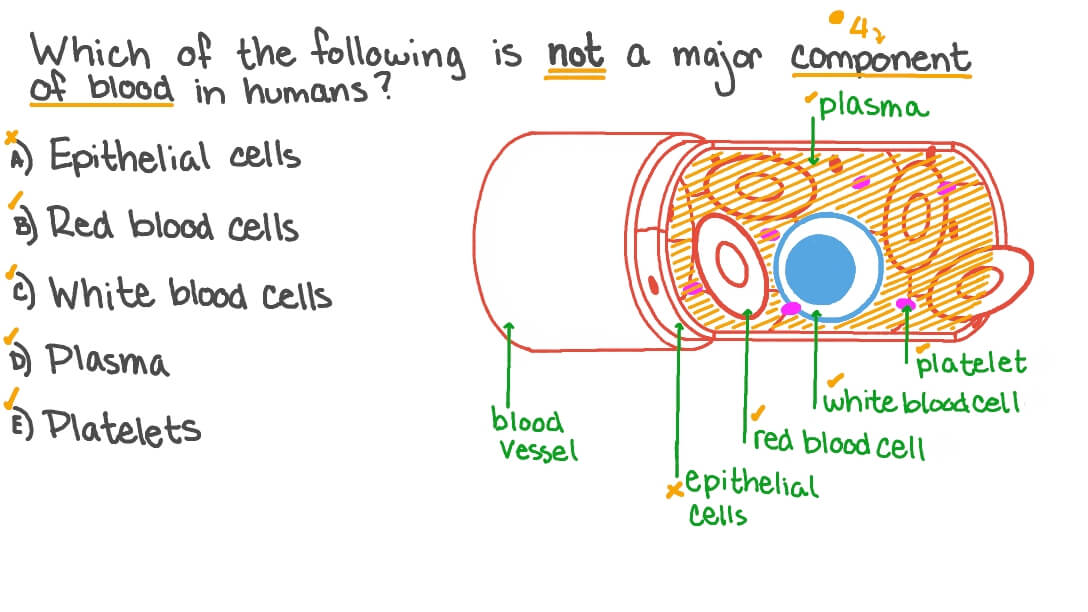 4
Which of the following is not a major component
of blood in humans?
plasma
A) Epithelial cells
B) Red blood cells
C) White blood cells
D) Plasma
E) Platelets
platelet
white blood cell
blood
vessel
red blood cell
epithelial
cells